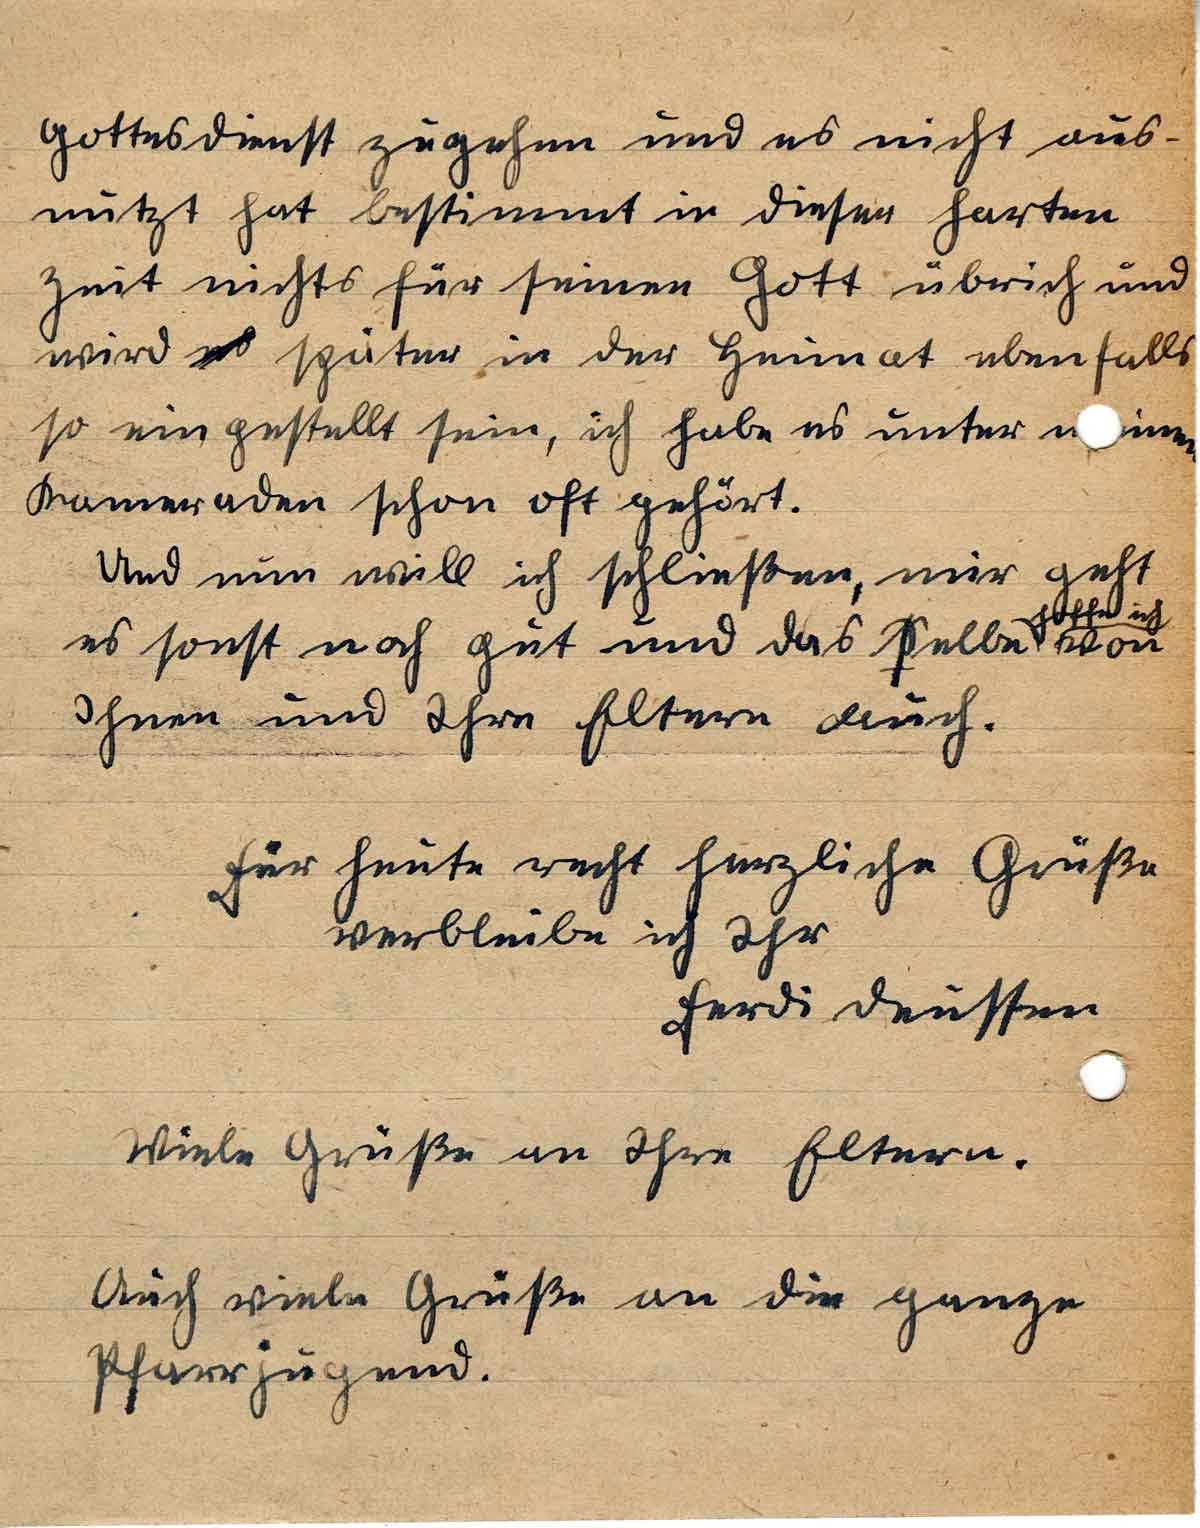 Gottesdienst zugehen und es nicht aus-
nützt hat bestimmt in dieser harten
Zeit nichts für seinen Gott übrich und
wird es später in der Heimat ebenfalls
so eingestellt sein, ich habe es unter meinen
Kameraden schon oft gehört.
Und nun will ich schließen, mir geht
es sonst noch gut und das selbe hoffe ich von
Ihnen und Ihre Eltern auch.
Für heute recht herzliche Grüße
verbleibe ich Ihr
Ferdi Deussen
Viele Grüße an Ihre Eltern.
Auch viele Grüße an die ganze
Pfarrjugend.